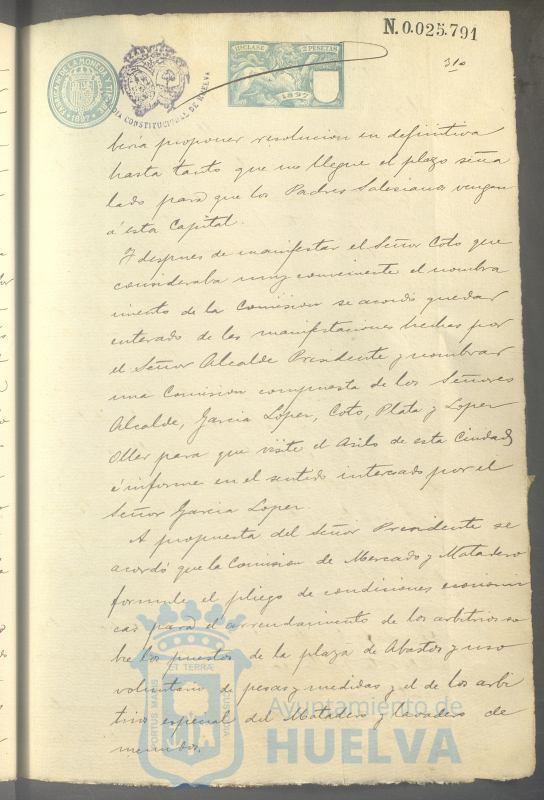 N.0.025.791
FABRICA DE LA MONEDA Y TIMBRE
1897
CONSTITUCIONAL DE HUELVA
11ª CLASE
2 PESETAS
1897
310
beria proponer resolucion en definitiva
hasta tanto que no llegue el plazo seña
lado para que los Padres Salesianos vengan
á esta Capital.
Y despues de manifestar el Señor Coto que
consideraba muy conveniente el nombra
miento de la Comision se acordó quedar
enterado de las manifestaciones hechas por
el Señor Alcalde Presidente y nombrar
una Comision compuesta de los Señores
Alcalde, Garcia Lopez, Coto, Plata y Lopez
Oller para que visite el Asilo de esta Ciudad
é informe en el sentido interesado por el
Señor Garcia Lopez
A propuesta del Señor Presidente se
acordó que la Comision de Mercado y Matadero
formule el pliego de condiciones economi
cas para el arrendamiento de los arbitrios so
bre los puestos de la plaza de Abastos y uso
voluntario de pesas y medidas y el de los arbi
trios especial del Matadero y lavadero de
menudos.
PORTUS MARIS
ET TERRÆ
CUSTODIA
Ayuntamiento de
HUELVA